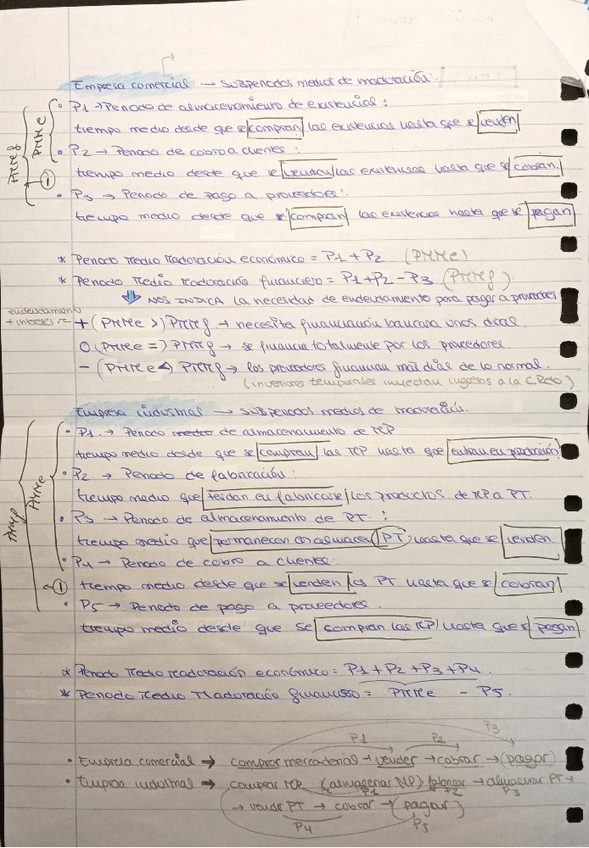 Empresa comercial → Subperiodos medios de maduración.
• P1 → Periodo de almacenamiento de existencias:
tiempo medio desde que se compran las existencias hasta que se venden
• P2 → Periodo de cobro a clientes:
tiempo medio desde que se venden las existencias hasta que se cobran.
• P3 → Periodo de pago a proveedores:
tiempo medio desde que se compran las existencias hasta que se pagan
PMMe
PMMf
1
* Periodo Medio Maduración económico = P1 + P2 (PMMe)
* Periodo Medio Maduración financiero = P1 + P2 - P3 (PMMf).
⇓ NOS INDICA la necesidad de endeudamiento para pagar a proveedores
endeudamiento
+ intereses =
+ (PMMe >) PMMf → necesita financiación bancaria unos días.
0 (PMMe =) PMMf → se financia totalmente por los proveedores.
- (PMMe <) PMMf → los proveedores financian más días de lo normal.
(inversiones temporales inyectan ingresos a la C.Rdto)
Empresa industrial → Subperiodos medios de maduración.
• P1 → Periodo medio de almacenamiento de MP
tiempo medio desde que se compran las MP hasta que entran en producción
• P2 → Periodo de fabricación:
tiempo medio que tardan en fabricarse los productos de MP a PT.
• P3 → Periodo de almacenamiento de PT.:
tiempo medio que permanecen en almacén PT hasta que se venden.
• P4 → Periodo de cobro a clientes.
tiempo medio desde que se venden los PT hasta que se cobran
• P5 → Periodo de pago a proveedores.
tiempo medio desde que se compran las MP hasta que se pagan
PMMe
PMMf
1
* Periodo Medio Maduración económico = P1 + P2 + P3 + P4
* Periodo Medio Maduración financiero = PMMe - P5.
P1 P2 P3
• Empresa comercial → comprar mercaderías → vender → cobrar → (pagar)
• Empresa industrial → comprar MP (almacenar MP) fabricar → almacenar PT →
P1 P2 P3
→ vender PT → cobrar → (pagar)
P4 P5